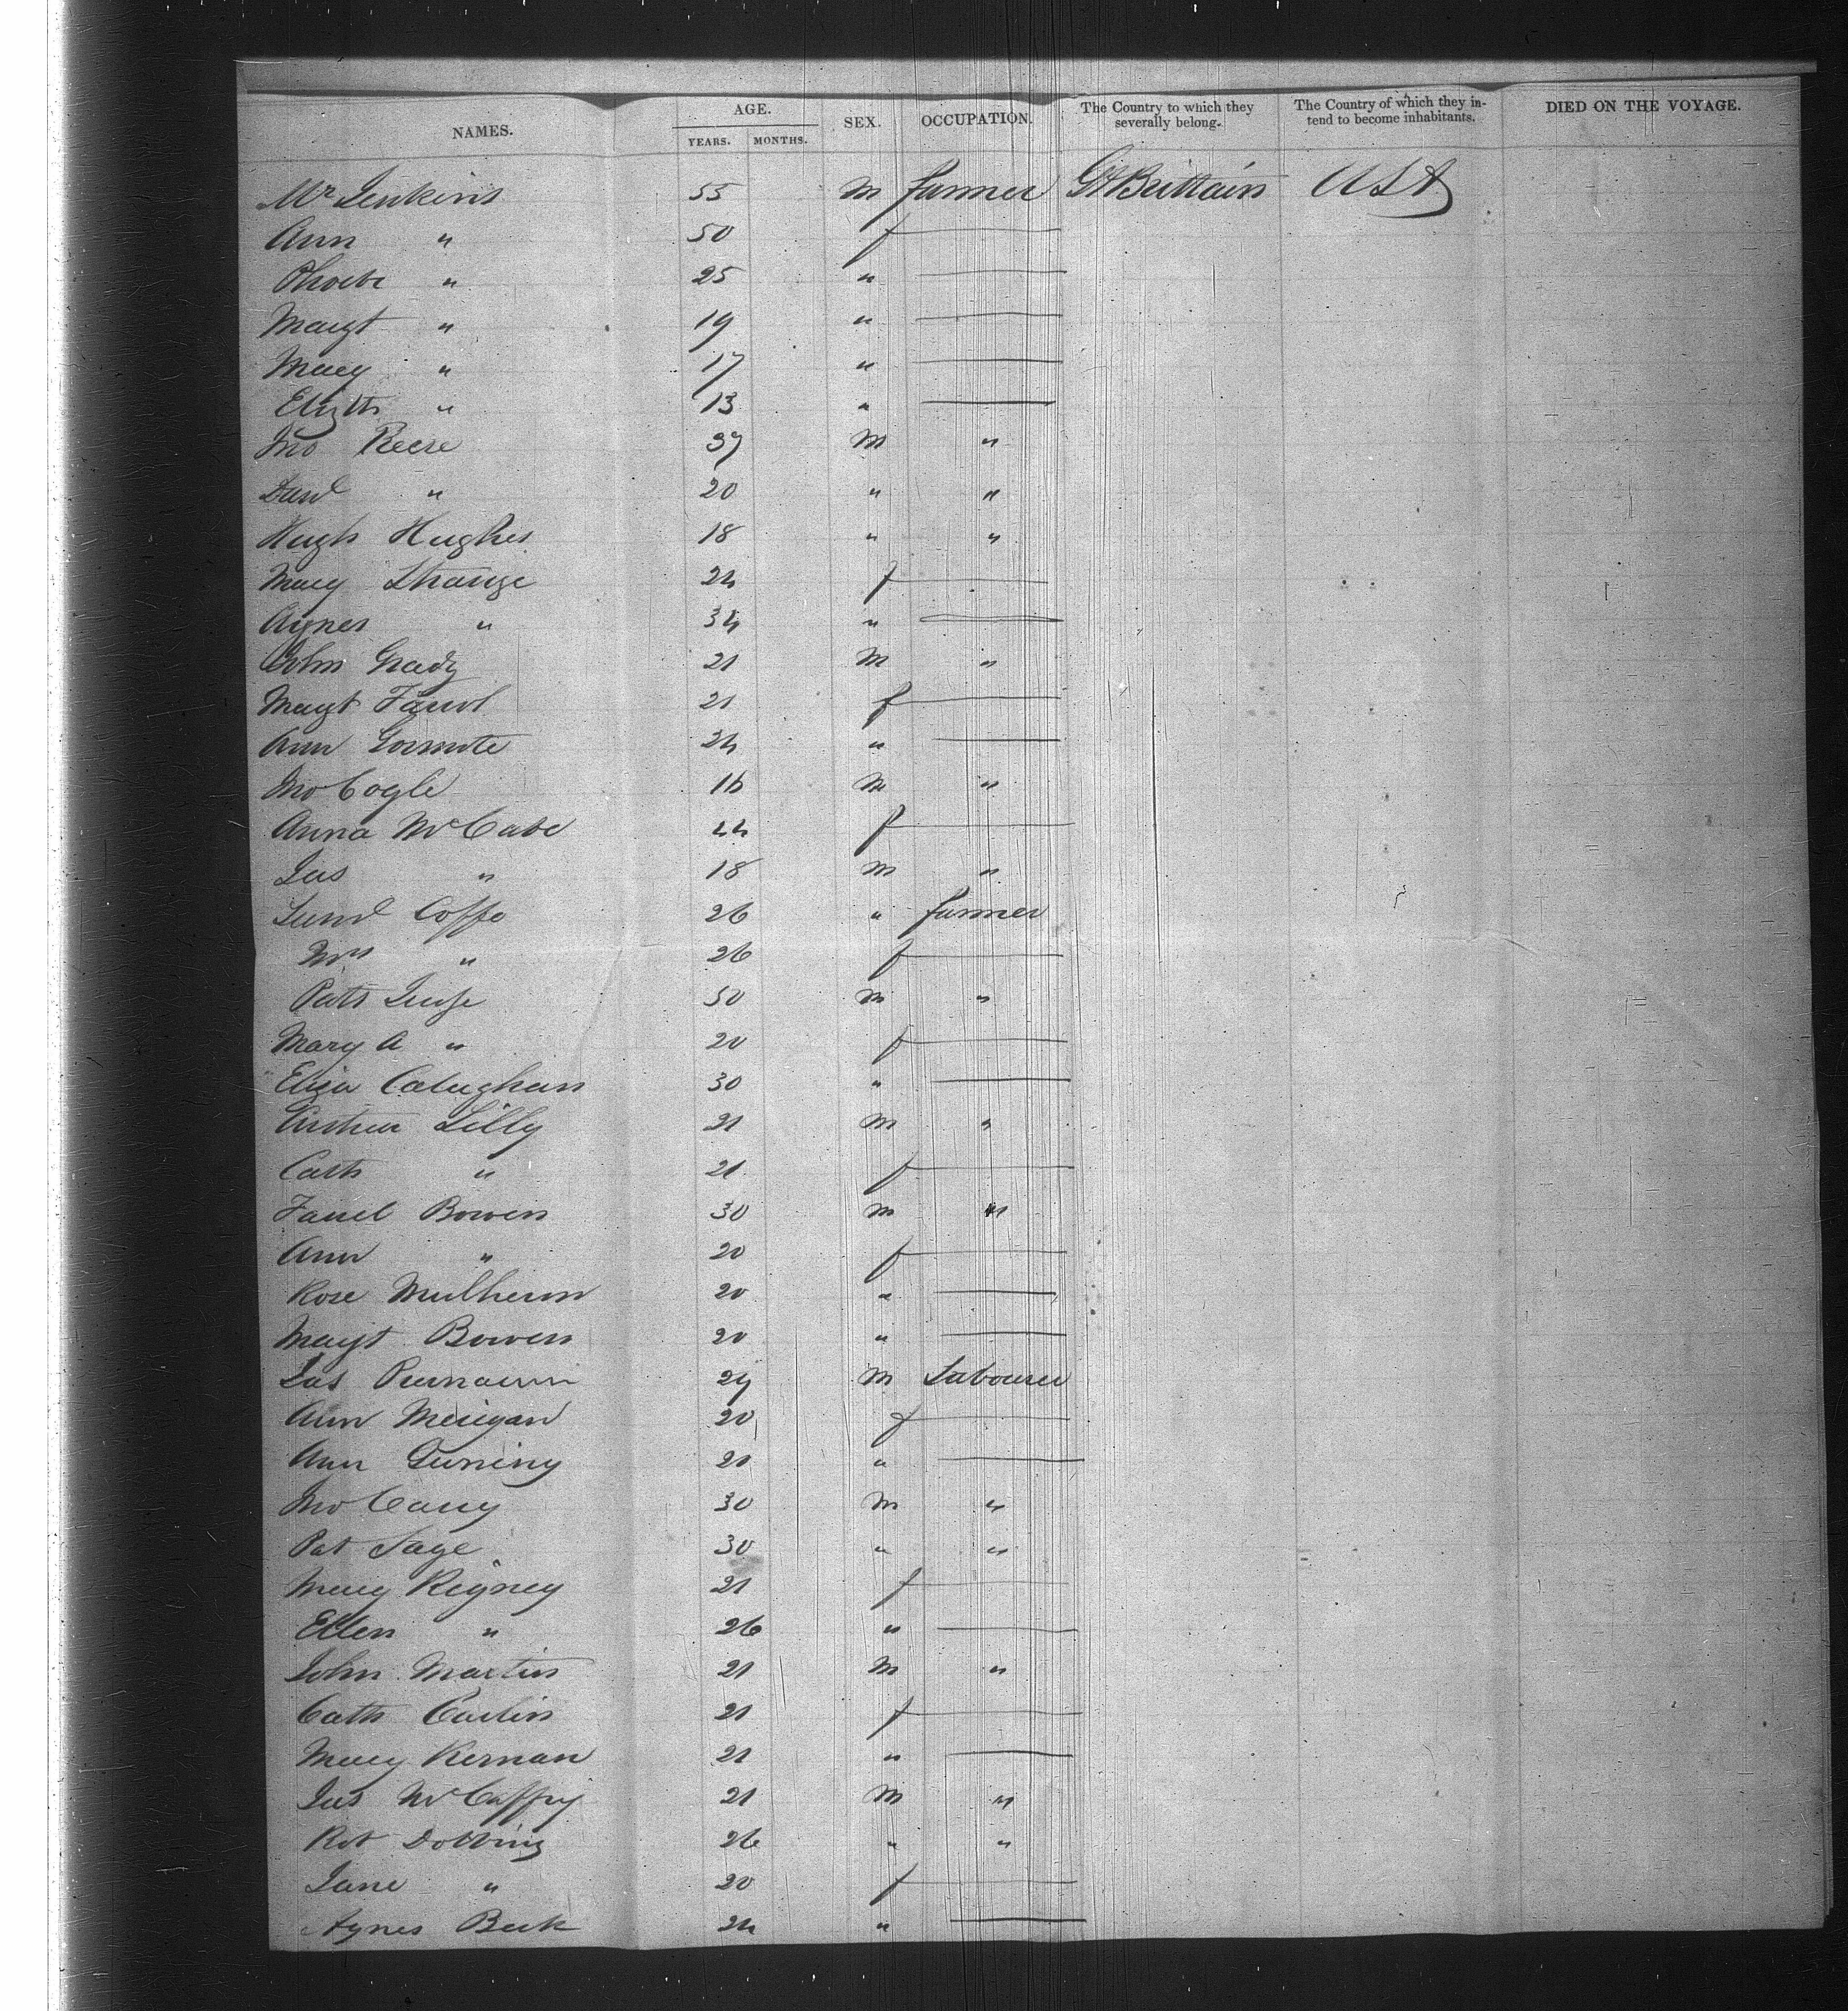 NAMES. AGE. YEARS. MONTHS. SEX. OCCUPATION. The Country to which they severally belong. The Country of which they intend to become inhabitants. DIED ON THE VOYAGE.
Mr Jenkins 55 M farmer Gt Brittain USA
Ann " 50 f
Phoebe " 25 "
Margt " 19 "
Mary " 17 "
Elizth " 13 "
Jno Reese 37 M "
Danl " 20 " "
Hugh Hughes 18 " "
Mary Strange 24 f
Agnes " 34 "
John Grady 21 M "
Margt 21 f
Ann 24 "
Jno Cogle 16 M "
Anna McCabe 44 f
Jas " 18 M "
Saml Coffe 26 " farmer
Mrs " 26 f
50 M "
Mary A " 20 f
Eliza Calaghan 30 "
Arthur Lilly 21 M "
Cath " 21 f
Bowen 30 M "
Ann " 20 f
Rose Mulhern 20 "
Margt Bowen 20 "
Jas 27 M Labourer
Ann Merigan 20 f
Ann 21 "
Jno Carry 30 M "
Pat 30 " "
Mary Rigney 21 f
Ellen " 26 "
John Martin 21 M "
Cath Carlin 21 f
Mary Kernan 21 "
Jas McCaffry 21 M "
Rot Dobbing 26 " "
Jane " 20 f
Agnes Beck 24 "